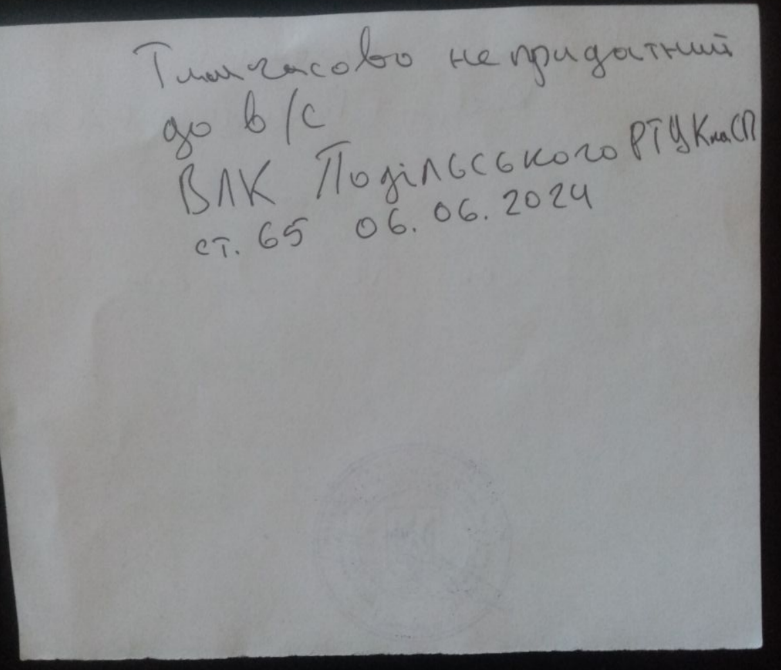 Тимчасово непридатний
до в/с
ВЛК Подільського РТЦК та СП
ст. 65 06.06.2024